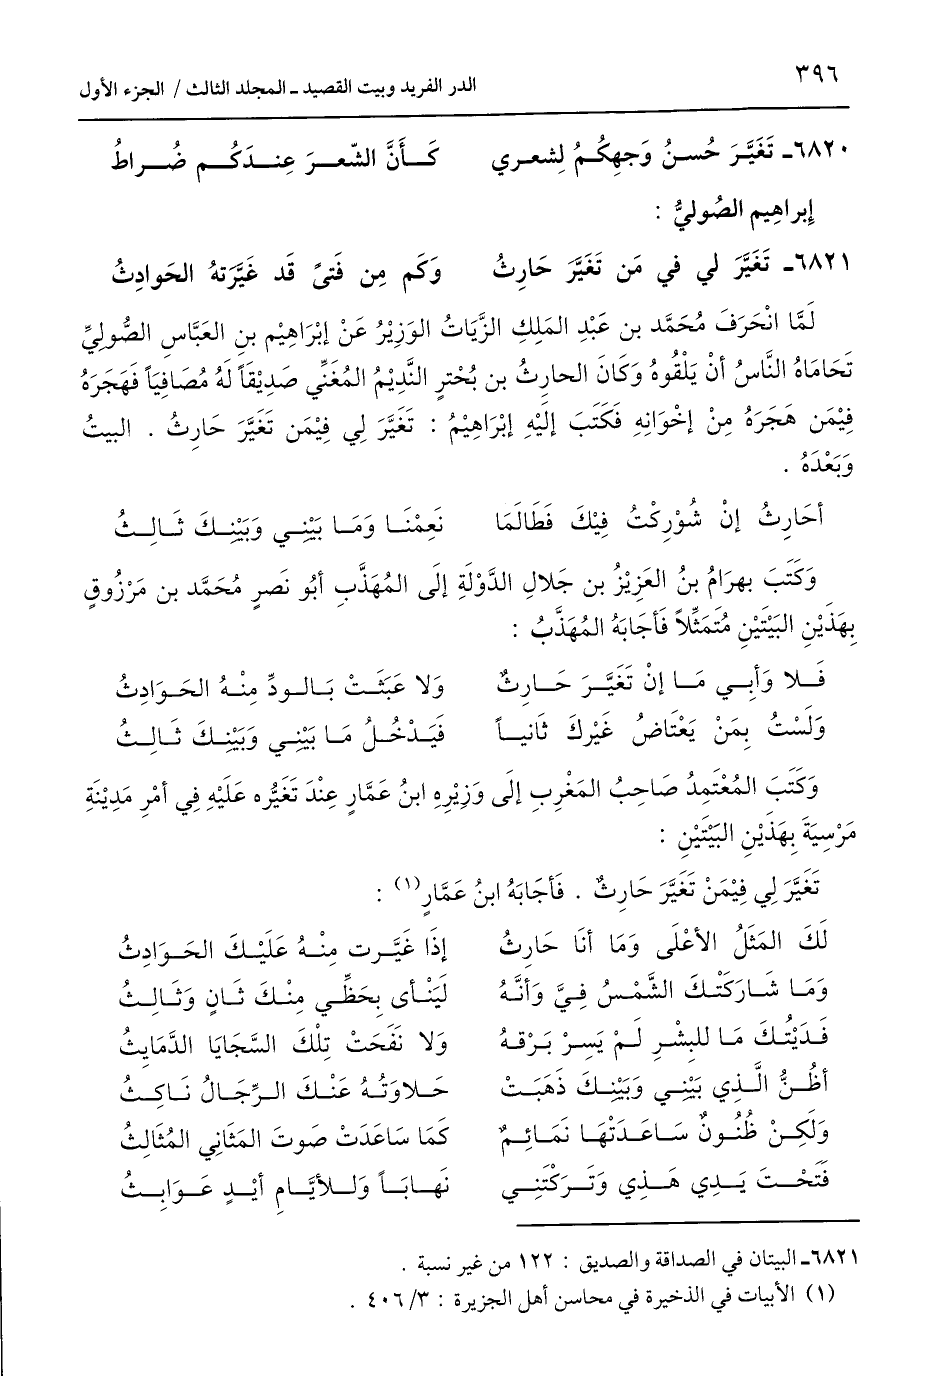 ٣٩٦
الدر الفريد وبيت القصيد ـ المجلد الثالث / الجزء الأول
٦٨٢٠ـ تَغَيَّرَ حُسنُ وَجهِكُمُ لِشعري كَأَنَّ الشّعرَ عِندَكُم ضُراطُ
إبراهِيم الصُوليُّ :
٦٨٢١ـ تَغَيَّرَ لي في مَن تَغَيَّرَ حَارِثُ وَكَم مِن فَتىً قَد غَيَّرَتهُ الحَوادِثُ
لَمَّا انْحَرَفَ مُحَمَّد بن عَبْدِ المَلِكِ الزَّيَاتُ الوَزِيْرُ عَنْ إبْرَاهِيْم بنِ العَبَّاسِ الصُّولِيِّ
تَحَامَاهُ النَّاسُ أنْ يَلْقُوهُ وَكَانَ الحارِثُ بن بُخْترٍ النَّدِيْمُ المُغَنِّي صَدِيْقَاً لَهُ مُصَافِيَاً فَهَجَرَهُ
فِيْمَن هَجَرَهُ مِنْ إخْوَانِهِ فَكَتَبَ إلَيْهِ إبْرَاهِيْمُ : تَغَيَّرَ لِي فِيْمَن تَغَيَّرَ حَارِثُ . البَيتُ
وَبَعْدَهُ .
أحَارِثُ إنْ شُوْرِكْتُ فِيْكَ فَطَالَمَا نَعِمْنَا وَمَا بَيْنِي وَبَيْنِكَ ثَالِثُ
وَكَتَبَ بهرَامُ بنُ العَزِيْزُ بن جَلالِ الدَّوْلَةِ إلَى المُهَذَّبِ أبُو نَصرٍ مُحَمَّد بن مَرْزُوقٍ
بِهَذَيْنِ البَيْتَيْنِ مُتَمَثِّلاً فَأجَابَهُ المُهَذَّبُ :
فَلا وَأبِي مَا إنْ تَغَيَّرَ حَارِثٌ وَلا عَبَثَتْ بَالودِّ مِنْهُ الحَوَادِثُ
وَلَسْتُ بِمَنْ يَعْتَاضُ غَيْرِكَ ثَانِيَاً فَيَدْخُلُ مَا بَيْنِي وَبَيْنِكَ ثَالِثُ
وَكَتَبَ المُعْتَمِدُ صَاحِبُ المَغْرِبِ إلَى وَزِيْرِهِ ابنُ عَمَّارٍ عِنْدَ تَغَيُّرِه عَلَيْهِ فِي أمْرِ مَدِيْنَةِ
مَرْسِيَةَ بِهَذَيْنِ البَيْتَيْنِ :
تَغَيَّرَ لِي فِيْمَنْ تَغَيَّرَ حَارِثٌ . فَأجَابَهُ ابنُ عَمَّارٍ(١) :
لَكَ المَثَلُ الأعْلَى وَمَا أنَا حَارِثُ إذَا غَيَّرت مِنْهُ عَلَيْكَ الحَوَادِثُ
وَمَا شَارَكَتْكَ الشَّمْسُ فِيَّ وَأنَّهُ لَيَنْأى بِحَظِّي مِنْكَ ثَانٍ وَثَالِثُ
فَدَيْتُكَ مَا للبِشْرِ لَمْ يَسِرْ بَرْقهُ وَلا نَفَحَتْ تِلْكَ السَّجَايَا الدَّمَايثُ
أظُنُّ الَّذِي بَيْنِي وَبَيْنِكَ ذَهَبَتْ حَلاوَتُهُ عَنْكَ الرِّجَالُ نَاكِثُ
وَلَكِنْ ظُنُونٌ سَاعَدَتْهَا نَمَائِمٌ كَمَا سَاعَدَتْ صَوتَ المَثَانِي المُثَالِثُ
فَتَحْتَ يَدِي هَذِي وَتَرَكْتَنِي نِهَابَاً وَللأيَّامِ أيْدٍ عَوَابِثُ
٦٨٢١ـ البيتان في الصداقة والصديق : ١٢٢ من غير نسبة .
(١) الأبيات في الذخيرة في محاسن أهل الجزيرة : ٤٠٦/٣ .